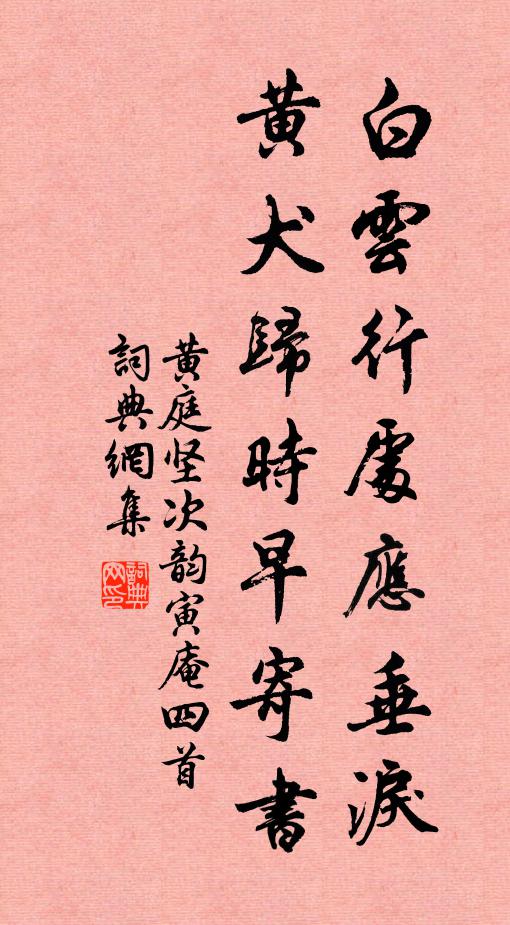 白雲行處應垂淚
黃犬歸時早寄書
黃庭坚次韵寅庵四首
詞典網集
詞典網印